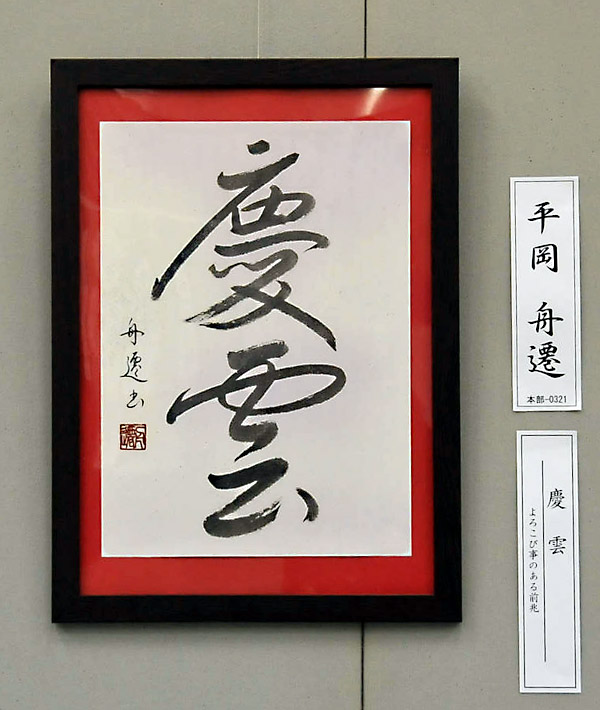 慶雲
舟遷書
平岡 舟遷
本部-0321
慶雲
よろこび事のある前兆